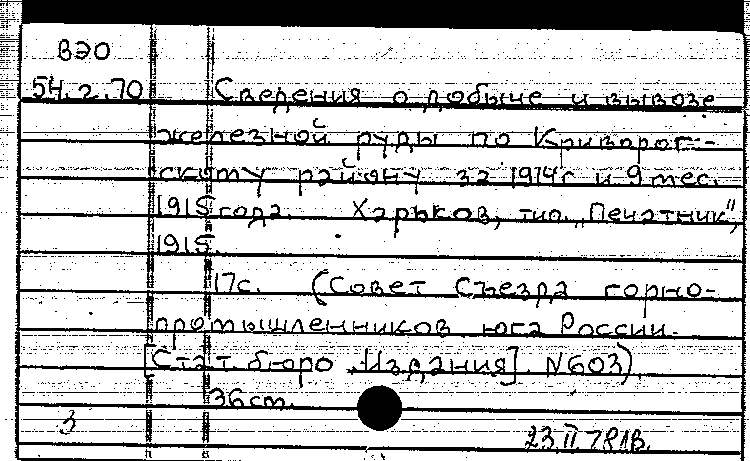 ВЭО
54.2.70 Сведения о добыче и вывозе
железной руды по Криворог-
скому району за 1914г и 9 мес.
1915 года. Харьков, тип. „Печатник",
1915.
17с. (Совет Съезда горно-
промышленников юга России.
[Стат. бюро. Издания]. N603).
36см.
3 23.II.78